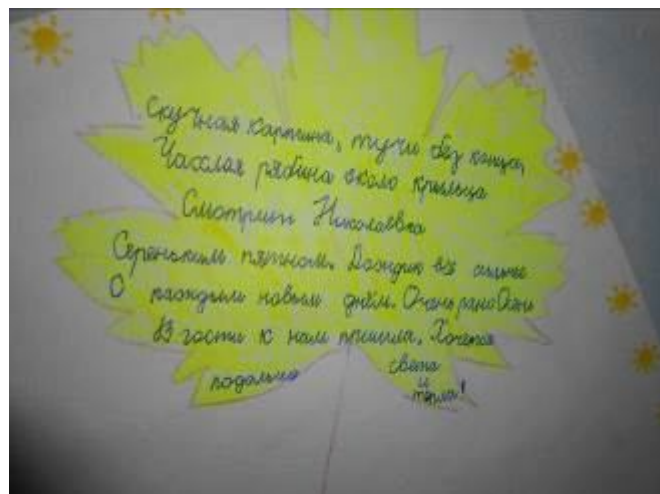 Скучная картина, тучи без конца,
Чахлая рябина около крыльца
Смотрит Николаевка
Сереньким пятном. Дождик всё сильнее
С каждым новым днём. Очень рано Осень
В гости к нам пришла. Хочется
подольше света
и
тепла!